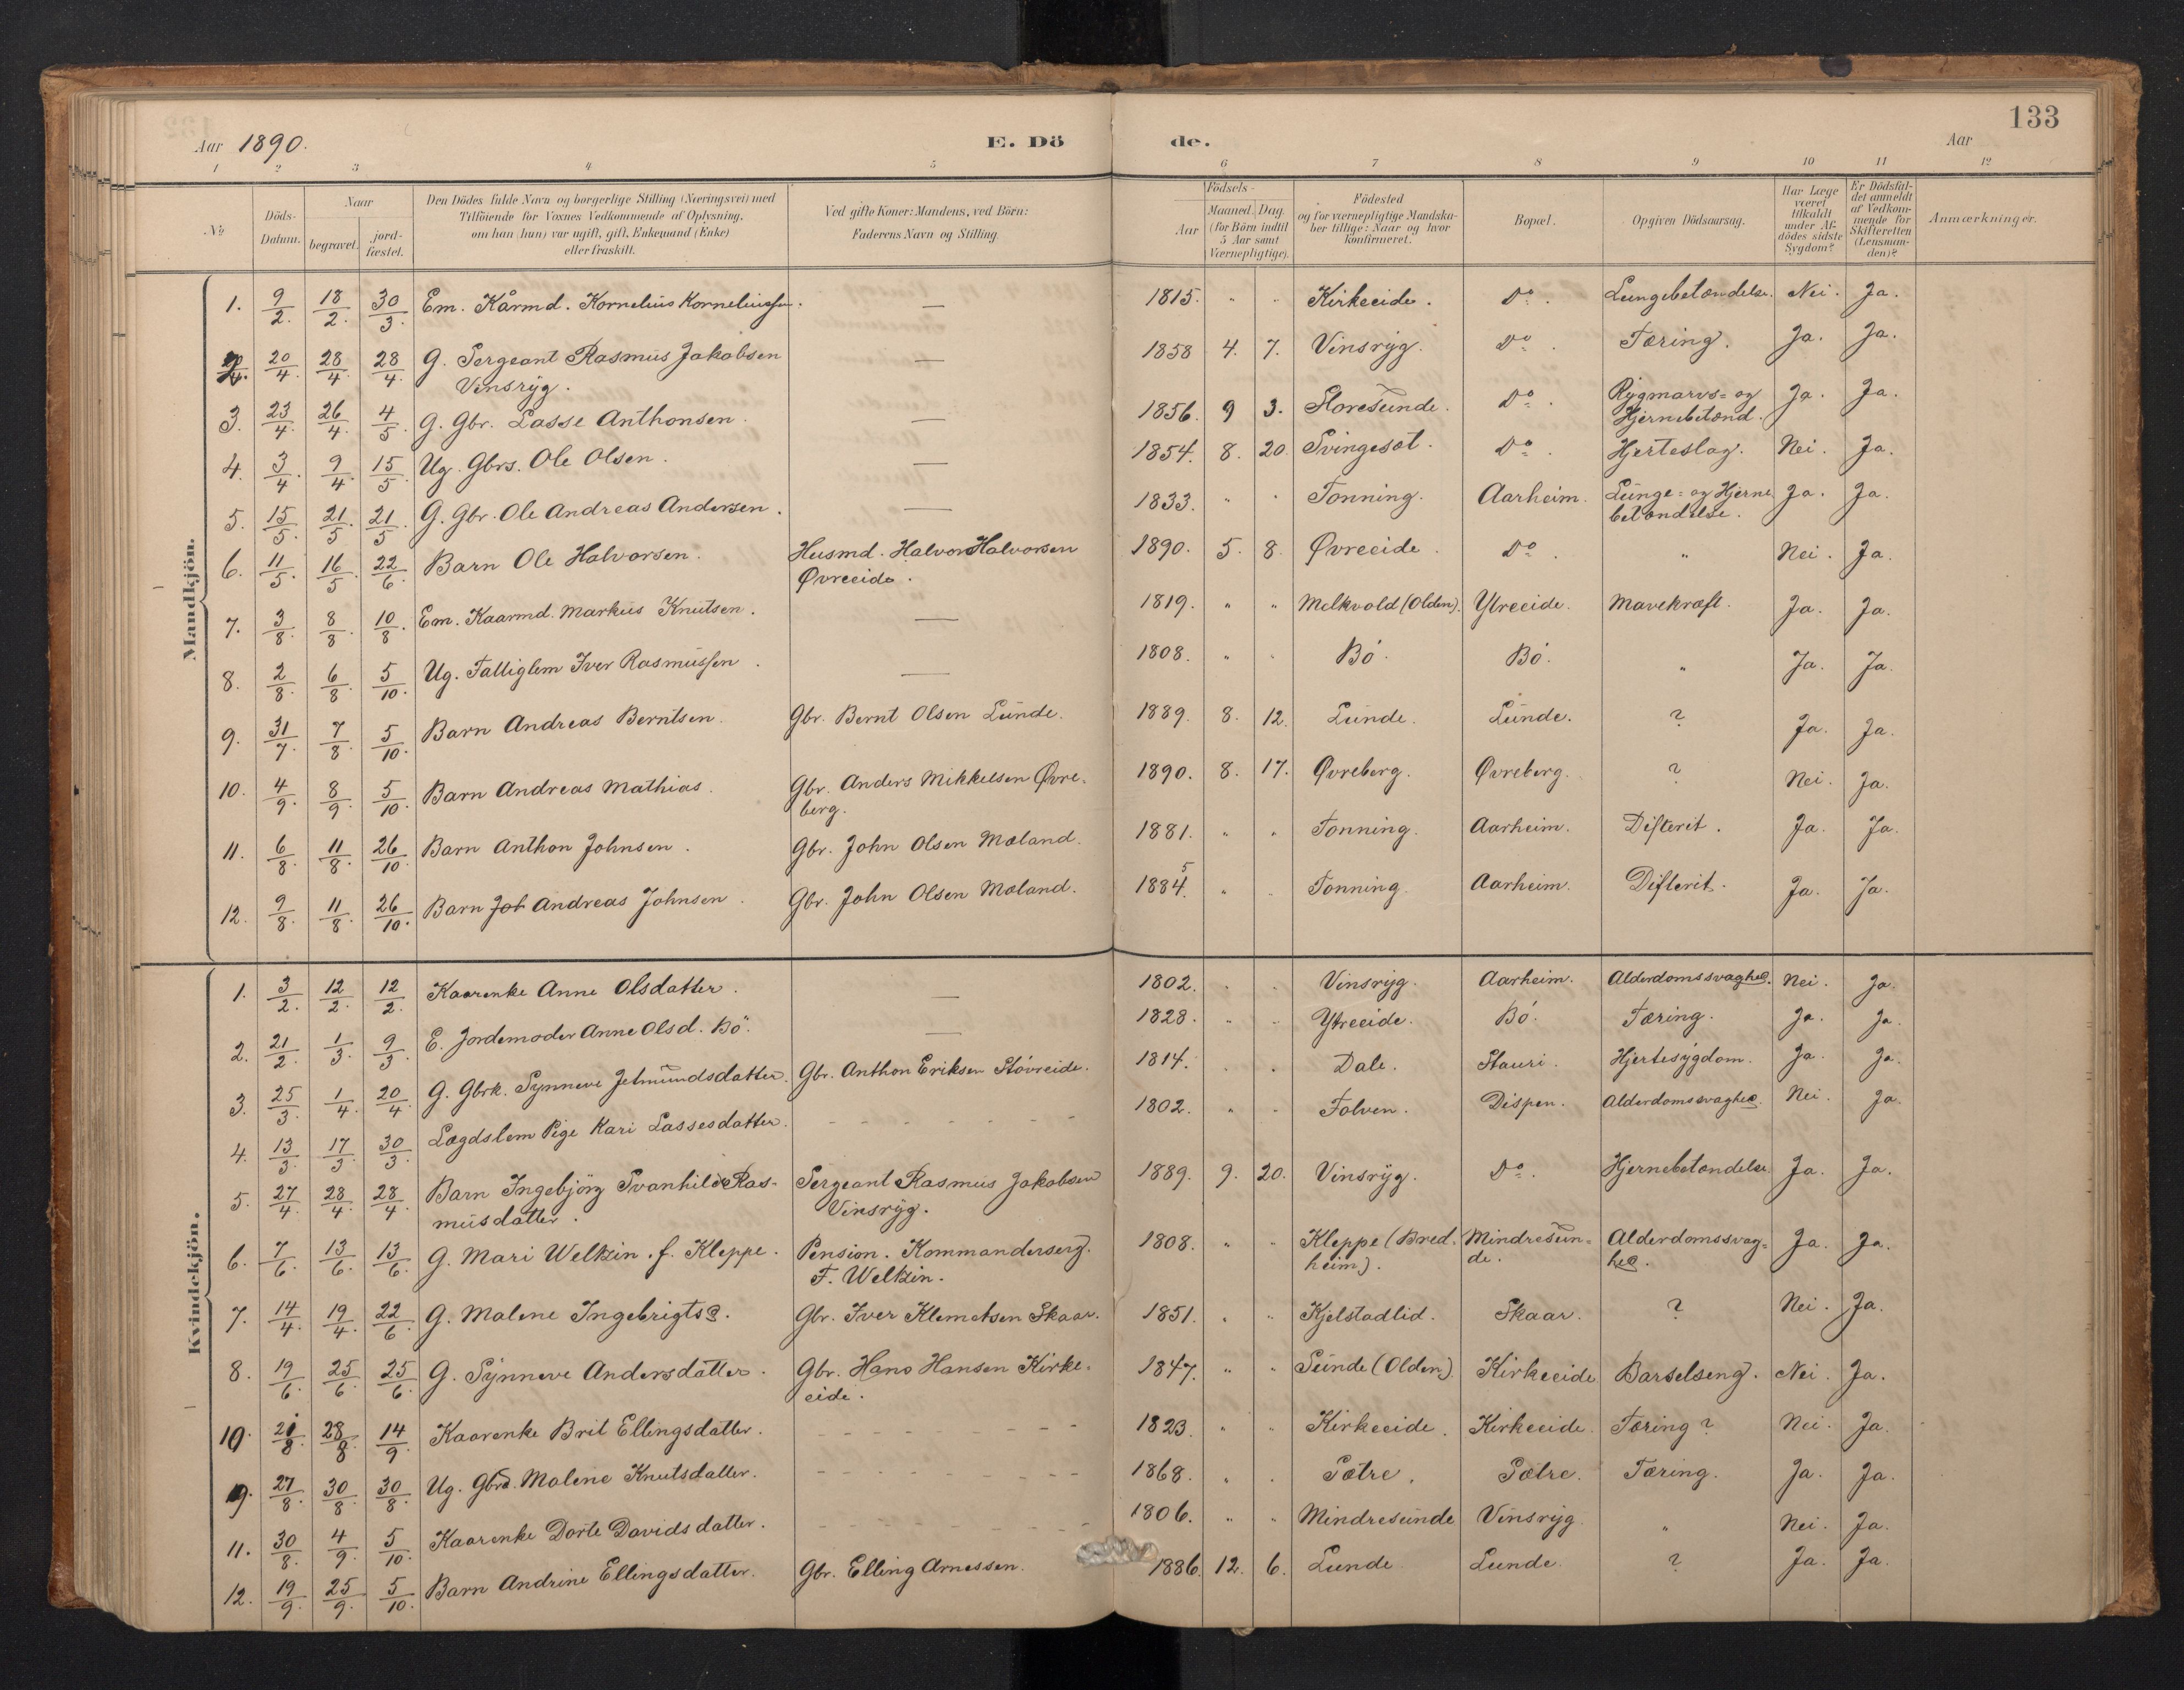 133
Aar 1890. E. Dö de. Aar
1 2 3 4 5 6 7 8 9 10 11 12
№
Döds-Datum.
Naar
begravet.
jord-fæstet.
Den Dödes fulde Navn og borgerlige Stilling (Næringsvei) med
Tilföiende for Voxnes Vedkommende af Oplysning,
om han (hun) var ugift, gift, Enkemand (Enke)
eller fraskilt.
Ved gifte Koner: Mandens, ved Börn:
Faderens Navn og Stilling.
Födsels-
Aar
Maaned. Dag.
(for Börn indtil
5 Aar samt
Værnepligtige).
Födested
og for værnepligtige Mandska-
ber tillige: Naar og hvor
konfirmeret.
Bopæl.
Opgiven Dödsaarsag.
Har Læge
været
tilkaldt
under Af-
dödes sidste
Sygdom?
Er Dödsfal-
det anmeldt
af Vedkom-
mende for
Skifteretten
(Lensman-
den)?
Anmærkninger.
Mandkjön.
1. 9/2. 18/2. 30/3. Em. Kårmd. Kornelius Korneliussen. — 1815. " " Kirkeeide. Do. Lungebetændelse. Nei. Ja.
2/4. 20/4. 28/4. 28/4. G. Sergeant Rasmus Jakobsen — 1858 4. 7. Vinsryg. Do. Tæring. Ja. Ja.
Vinsryg.
3. 23/4. 26/4. 4/5. G. Gbr. Lasse Anthonsen. — 1856. 9 3. Storesunde. Do. Rygmarvs- og Ja. Ja.
Hjernebetænd.
4. 3/4. 9/4. 15/5. Ug. Gbrs. Ole Olsen. — 1854. 8. 20. Svingesæt. Do. Hjerteslag. Nei. Ja.
5. 15/5. 21/5. 21/5. G. Gbr. Ole Andreas Andersen. — 1833. " " Tonning. Aarheim. Lunge- og Hjerne Ja. Ja.
betændelse.
6. 11/5. 16/5. 22/6. Barn Ole Halvorsen. Husmd. Halvor Halvorsen 1890. 5. 8. Øvreeide. Do. " Nei. Ja.
Øvreeide.
7. 3/8. 8/8. 10/8. Em. Kaarmd. Markus Knutsen. — 1819. " " Melkvold (Olden). Ytreeide. Mavekræft. Ja. Ja.
8. 2/8. 6/8. 5/10. Ug. Fattiglem Iver Rasmussen. — 1808. " " Bö. Bö. " Ja. Ja.
9. 31/7. 7/8. 5/10. Barn Andreas Berntsen. Gbr. Bernt Olsen Lunde. 1889. 8. 12. Lunde. Lunde. ? Ja. Ja.
10. 4/9. 8/9. 5/10. Barn Andreas Mathias. Gbr. Anders Mikkelsen Øvre- 1890. 8. 17. Øvreberg. Øvreberg. ? Nei. Ja.
berg.
11. 6/8. 11/8. 26/10. Barn Anthon Johnsen. Gbr. John Olsen Mæland. 1881. " " Tonning. Aarheim. Difterit. Ja. Ja.
12. 9/8. 11/8. 26/10. Barn Joh Andreas Johnsen. Gbr. John Olsen Mæland. 1884.5 " " Tonning. Aarheim. Difterit. Ja. Ja.
Kvindekjön.
1. 3/2. 12/2. 12/2. Kaarenke Anne Olsdatter. — 1802. " " Vinsryg. Aarheim. Alderdomssvaghed. Nei. Ja.
2. 21/2. 1/3. 9/3. E. Jordemoder Anne Olsd. Bö. — 1828. " " Ytreeide. Bö. Tæring. Ja. Ja.
3. 25/3. 1/4. 20/4. G. Gbrk. Synneve Jetmundsdatter. Gbr. Anthon Eriksen Stövreide. 1814. " " Dale. Stauri. Hjertesygdom. Ja. Ja.
4. 13/3. 17/3. 30/3. Lægdslem Pige Kari Lassesdatter. - - - - - - - 1802. " " Folven. Dispen. Alderdomssvaghed. Nei. Ja.
5. 27/4. 28/4. 28/4. Barn Ingebjörg Svanhilde Ras- Sergeant Rasmus Jakobsen 1889. 9. 20. Vinsryg. Do. Hjernebetændelse. Ja. Ja.
musdatter. Vinsryg.
6. 7/6. 13/6. 13/6. G. Mari Weltzin. f. Kleppe. Pension. Kommandersergt. 1808. " " Kleppe (Bred- Mindresun- Alderdomssvag- Ja. Ja.
F. Weltzin. heim). de. hed.
7. 14/4. 19/4. 22/6. G. Malene Ingebrigtsd. Gbr. Iver Klemetsen Skaar. 1851. " " Kjelstadlid. Skaar. ? Nei. Ja.
8. 19/6. 25/6. 25/6. G. Synneve Andersdatter. Gbr. Hans Hansen Kirke- 1847. " " Sunde (Olden). Kirkeeide Barselseng. Nei. Ja.
eide.
10. 21/8. 28/8. 14/9. Kaarenke Brit Ellingsdatter. - - - - - - - 1823. " " Kirkeeide. Kirkeeide. Tæring? Nei. Ja.
9. 27/8. 30/8. 30/8. Ug. Gbrd. Malene Knutsdatter. - - - - - - - 1868. " " Sætre. Sætre. Tæring. Ja. Ja.
11. 30/8. 4/9. 5/10. Kaarenke Dorte Davidsdatter. - - - - - - - 1806. " " Mindresunde Vinsryg. " Nei. Ja.
12. 19/9. 25/9. 5/10. Barn Andrine Ellingsdatter. Gbr. Elling Arnessen. 1886. 12. 6. Lunde Lunde. ? Ja. Ja.